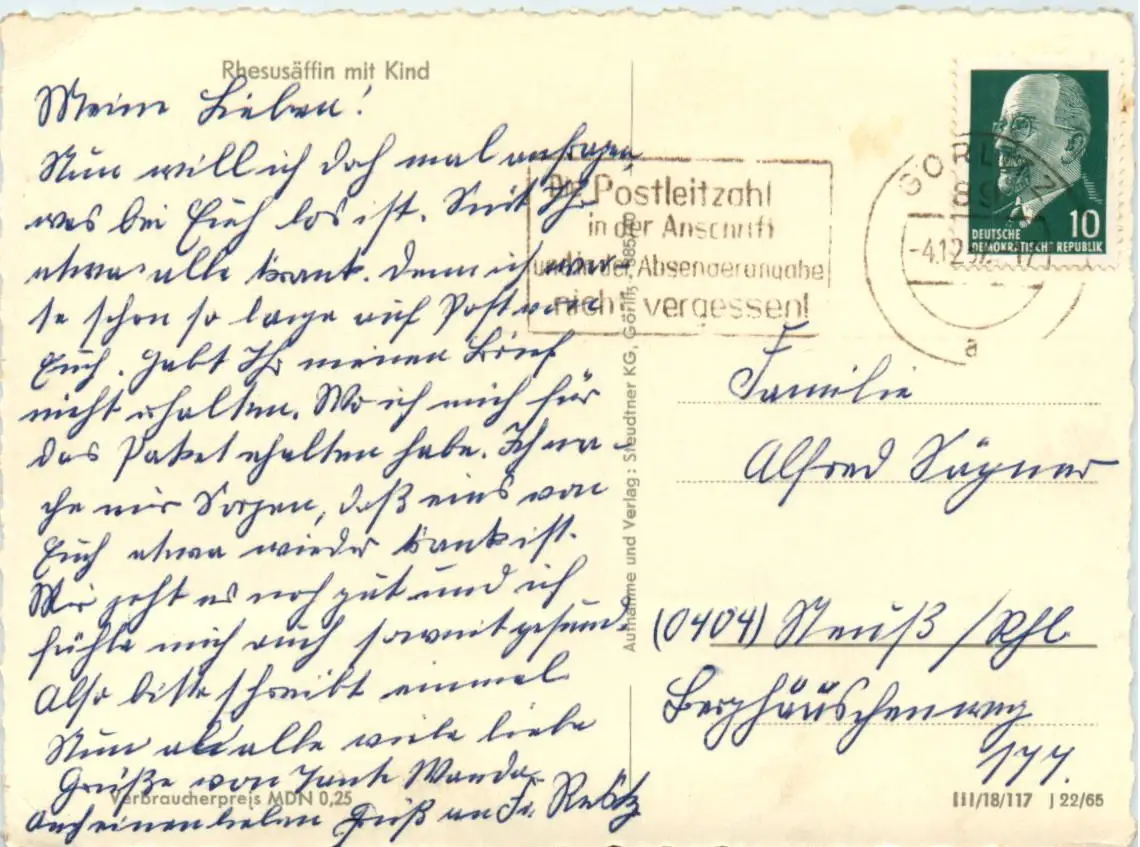 Rhesusäffin mit Kind
Meine Lieben!
Nun will ich doch mal anfragen,
was bei Euch los ist. Seit Ihr
etwa alle krank. Denn ich war-
te schon so lange auf Post von
Euch. Habt Ihr meinen Brief
nicht erhalten. Wo ich mich für
das Paket erhalten habe. Ich ma-
che mir Sorgen, daß eins von
Euch etwa wieder krank ist.
Mir geht es noch gut und ich
fühle mich auch soweit gesund.
Also bitte schreibt einmal
Nun alle viele liebe
Grüße von Tante Wanda
Verbraucherpreis MDN 0,25
auch einen lieben Gruß an Fr.
Aufnahme und Verlag: Steudtner KG, Görlitz
Die Postleitzahl
in der Anschrift
und in der Absenderangabe
nicht vergessen!
GÖRLITZ
89
-4.12
a
10
DEUTSCHE
DEMOKRATISCHE REPUBLIK
Familie
Alfred
(0404) Neuß /Rhl.
Berghäuschenweg
177.
III/18/117 J 22/65